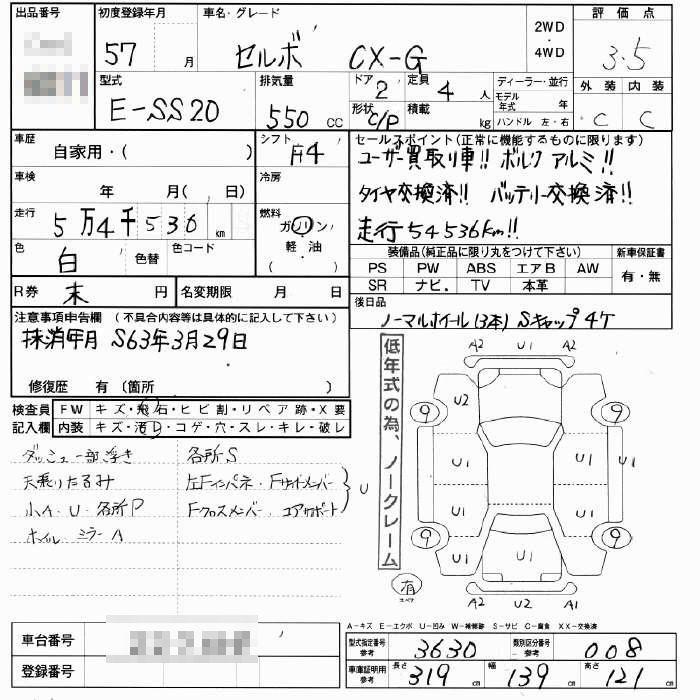 出品番号 初度登録年月 57 月
車名・グレード セルボ CX-G
2WD・4WD
評価点 3.5
型式 E-SS20
排気量 550 CC
ドア 2 定員 4 人
形状 C/P 積載 kg
ディーラー・並行
モデル年式 年
ハンドル 左・右
外装 内装
C C
車歴 自家用・( )
シフト F4
車検 年 月( 日)
冷房
走行 5万4千536 km
燃料 ガソリン・軽油 ( )
色 白 色替 色コード
R券 未 円 名変期限 月 日
セールスポイント(正常に機能するものに限ります)
ユーザー買取り車!! ボルク アルミ!!
タイヤ交換済!! バッテリー交換済!!
走行54536km!!
装備品(純正品に限り丸をつけて下さい) 新車保証書
PS PW ABS エアB AW 有・無
SR ナビ. TV 本革
後日品
ノーマルホイール(3本) Sキャップ4ケ
注意事項申告欄 (不具合内容等は具体的に記入して下さい)
抹消年月 S63年3月29日
修復歴 有 (箇所 )
検査員記入欄
FW キズ・飛石・ヒビ割・リペア跡・X要
内装 キズ・汚レ・コゲ・穴・スレ・キレ・破レ
ダッシュ一部浮き 各所S
天張りたるみ 左Fインパネ・Fサイドメンバー
小A・U・各所P Fクロスメンバー、コアサポート U
ホイル ミラーA
低年式の為、ノークレーム
A2 U1 A2
U2
9 9
U1 U1 U1
U1 U1
9 9
U1 U1 U1
有
スペア
A2 U2 A1
A-キズ E-エクボ U-凹み W-補修跡 S-サビ C-腐食 XX-交換済
車台番号
登録番号
型式指定番号 参考 3630 類別区分番号 参考 008
車庫証明用 参考 長さ 319 cm 幅 139 cm 高さ 121 cm